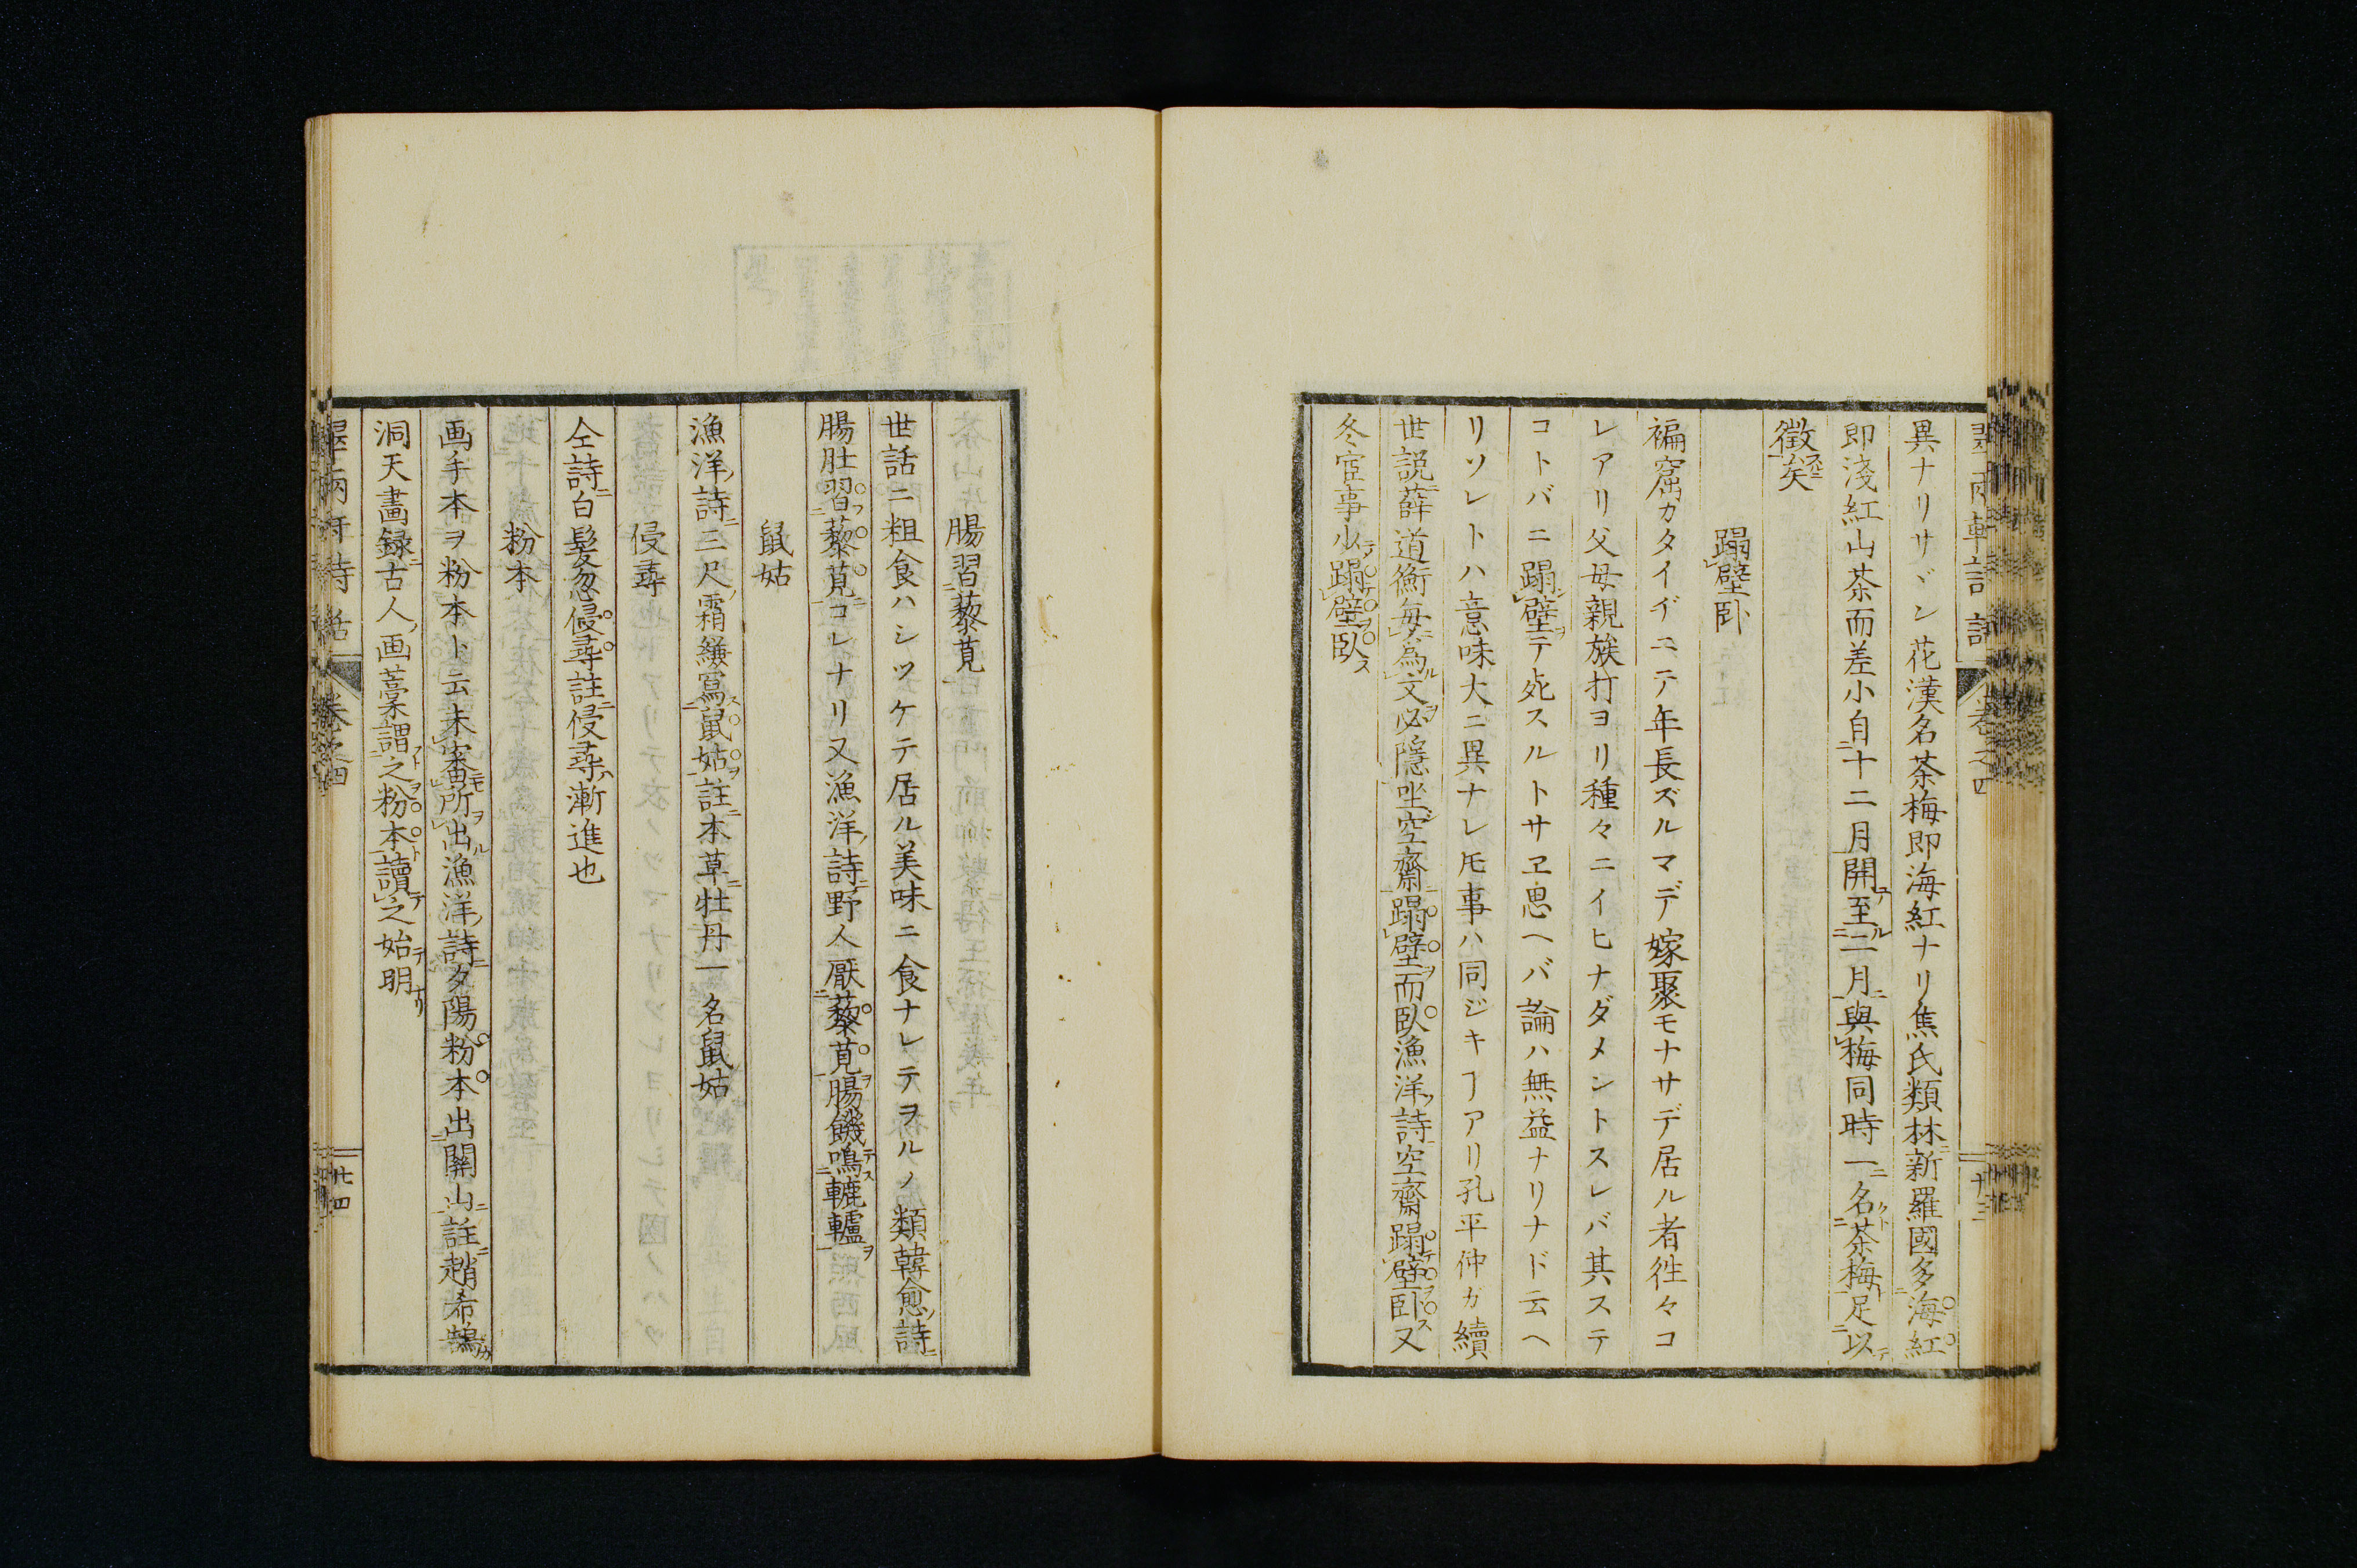 異ナリサヾン花漢名茶梅即海紅ナリ焦氏類林ニ新羅國多海紅
即淺紅山茶而差小自十二月開至二月與梅同時一名茶梅足以
徵矣
蹋壁卧
褊窟カタイヂニテ年長ズルマデ嫁聚モナサデ居ル者徃々コ
レアリ父母親族打ヨリ種々ニイヒナダメントスレバ其ステ
コトバニ蹋壁テ死スルトサヱ思ヘバ論ハ無益ナリナド云ヘ
リソレトハ意味大ニ異ナレ𪜈事ハ同ジキヿアリ孔平仲ガ續
世説薛道衡毎為文必隱坐空齋蹋壁而臥漁洋詩空齋蹋壁卧又
冬宦事少蹋壁臥
腸習藜莧
世話ニ粗食ハシツケテ居ル美味ニ食ナレテヲルノ類韓愈詩
腸肚習藜莧コレナリ又漁洋詩野人厭藜莧腸饑鳴轆轤
鼠姑
漁洋詩三尺霜縑寫鼠姑註本草牡丹一名鼠姑
侵尋
仝詩白髮忽侵尋註侵尋漸進也
粉本
画手本ヲ粉本ト云未審所出漁洋詩夕陽粉本出關山註趙希鵠
洞天畫録古人画藁謂之粉本讀之始明
卷之四
廿四